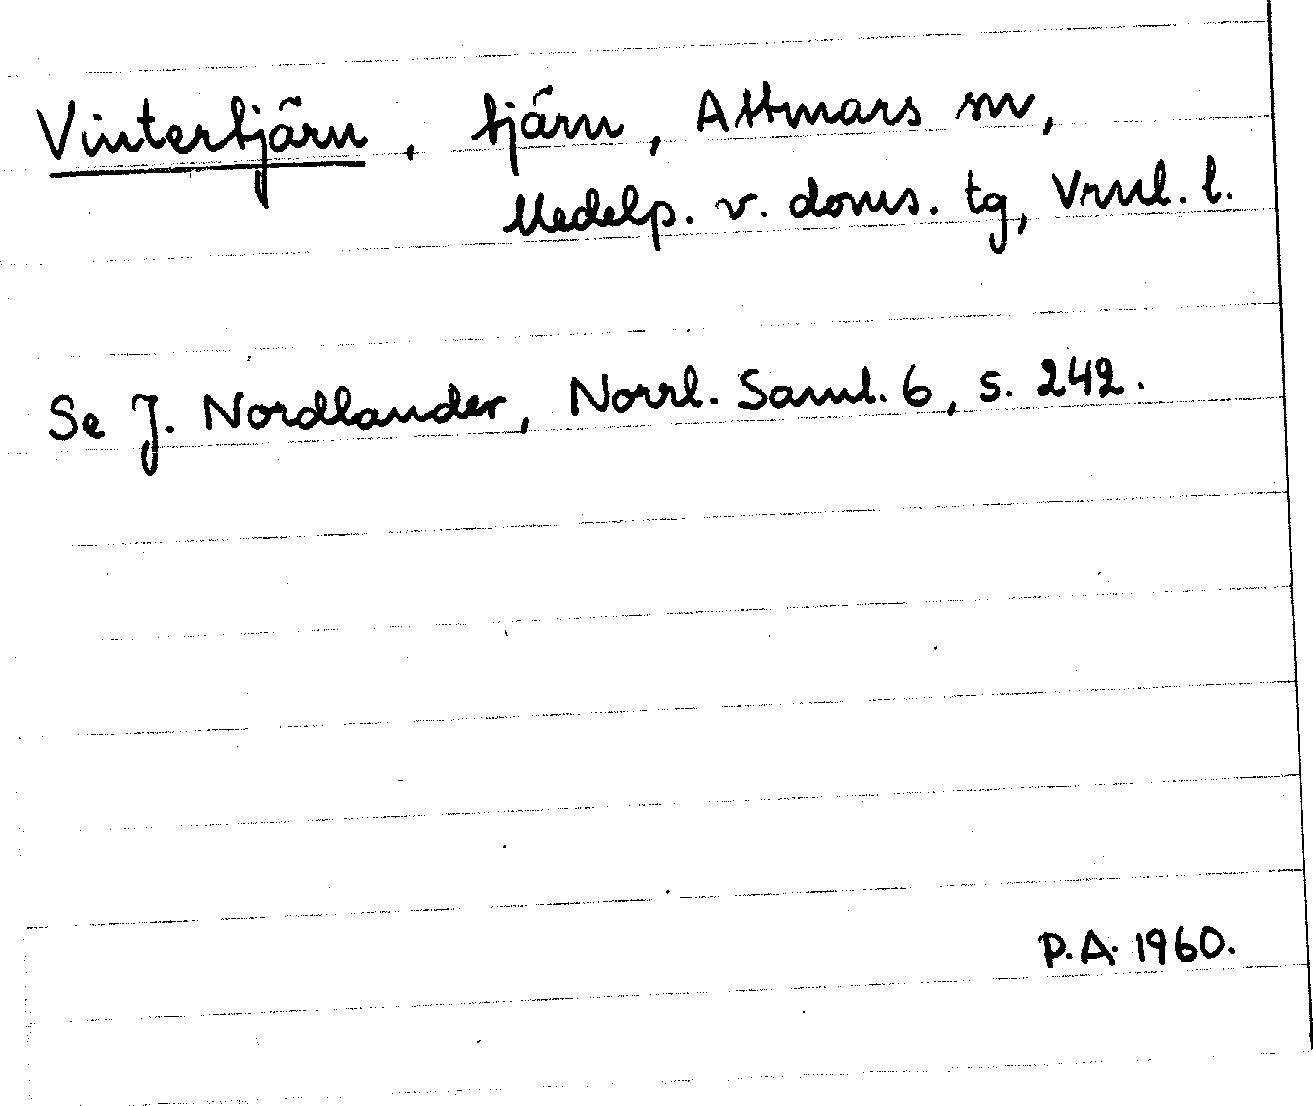 Vintertjärn, tjärn, Attmars sn,
Medelp. v. doms. tg, Vrnl. l.
Se J. Nordlander, Norrl. Saml. 6, s. 242.
P.A. 1960.